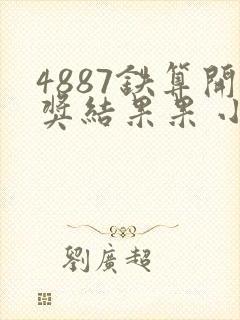 4887鉄算開
奖結果果小
劉廣超